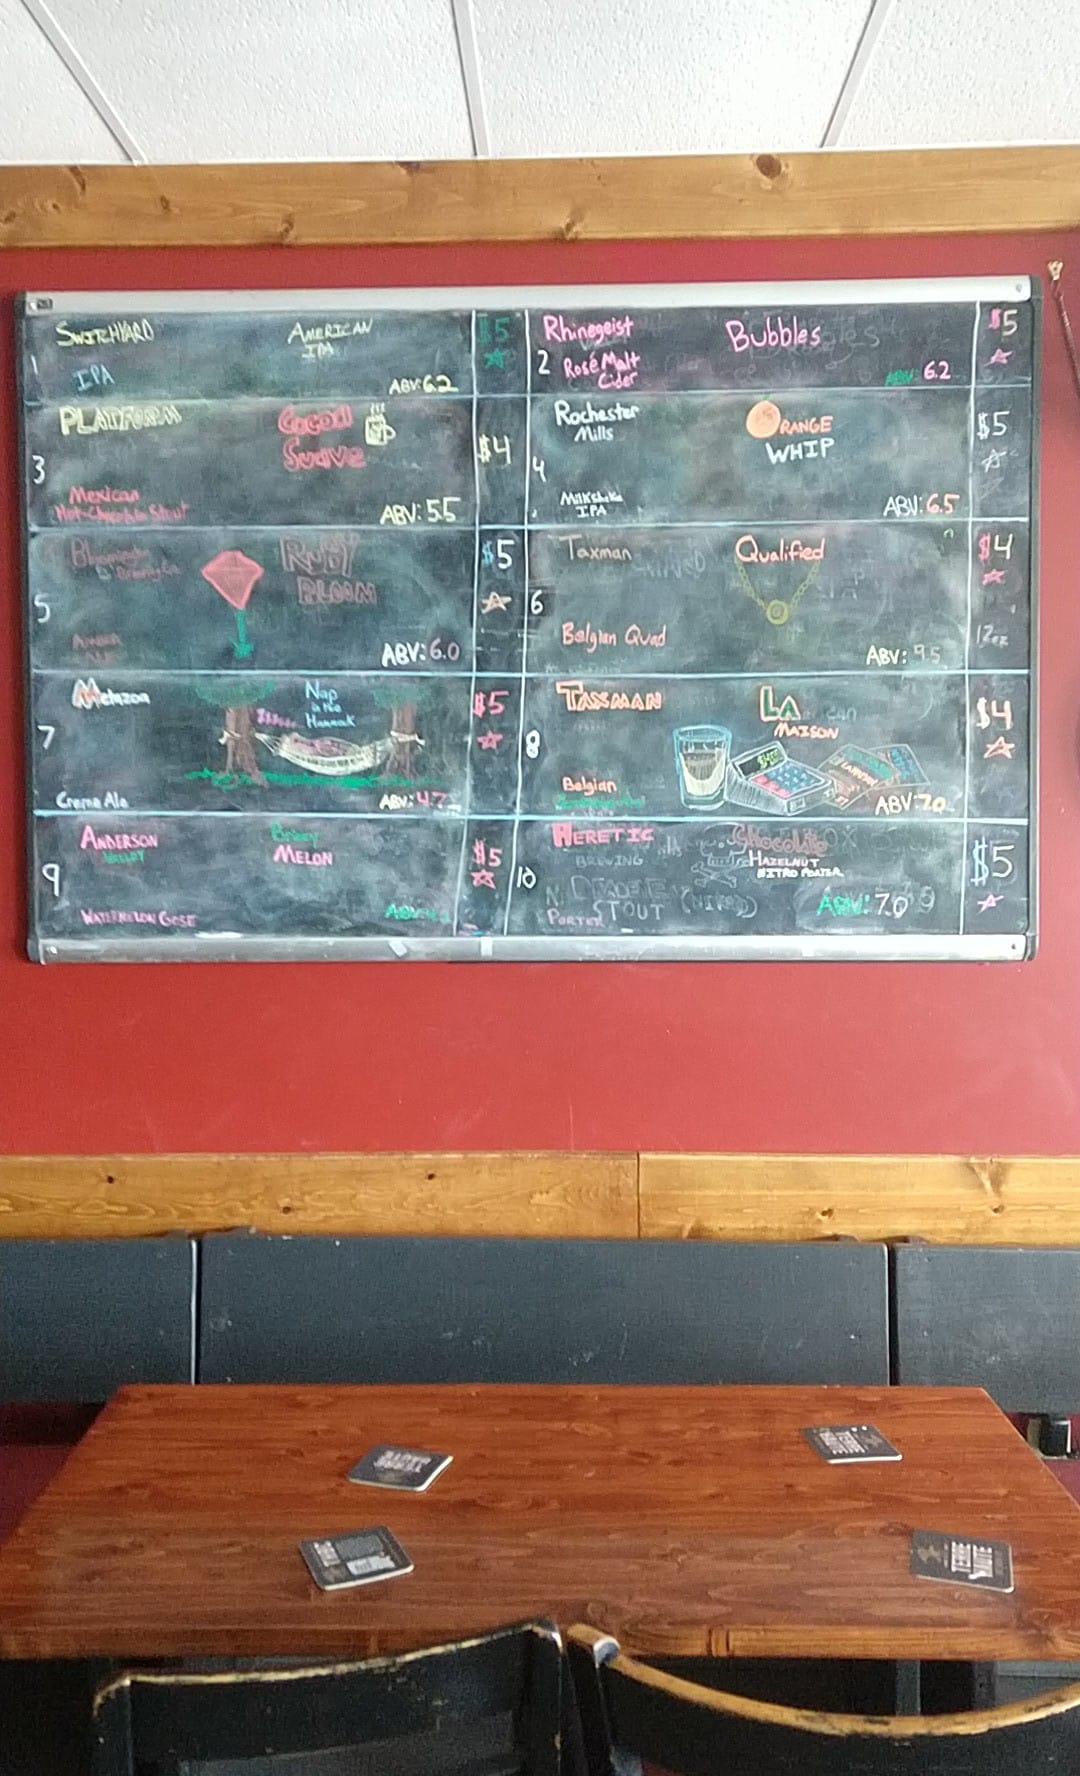 1
SWITCHYARD
AMERICAN
IPA
IPA
ABV: 6.2
$5
2
Rhinegeist
Bubbles
Rosé Malt
Cider
ABV: 6.2
$5
3
PLATFORM
Cocoa
Suave
Mexican
Hot-Chocolate Stout
ABV: 5.5
$4
4
Rochester
Mills
ORANGE
WHIP
Milkshake
IPA
ABV: 6.5
$5
5
Bloomington
Brewing Co
RUBY
BLOOM
Amber
Ale
ABV: 6.0
$5
6
Taxman
Qualified
Belgian Quad
ABV: 9.5
$4
12oz
7
Metazoa
Nap
in the
Hammock
Creme Ale
ABV: 4.7
$5
8
TAXMAN
LA
MAISON
Belgian
ABV: 7.0
$4
9
ANDERSON
VALLEY
Briney
MELON
WATERMELON GOSE
ABV:
$5
10
HERETIC
BREWING
Chocolate
HAZELNUT
NITRO PORTER
STOUT (NITRO)
PORTER
ABV: 7.0
$5